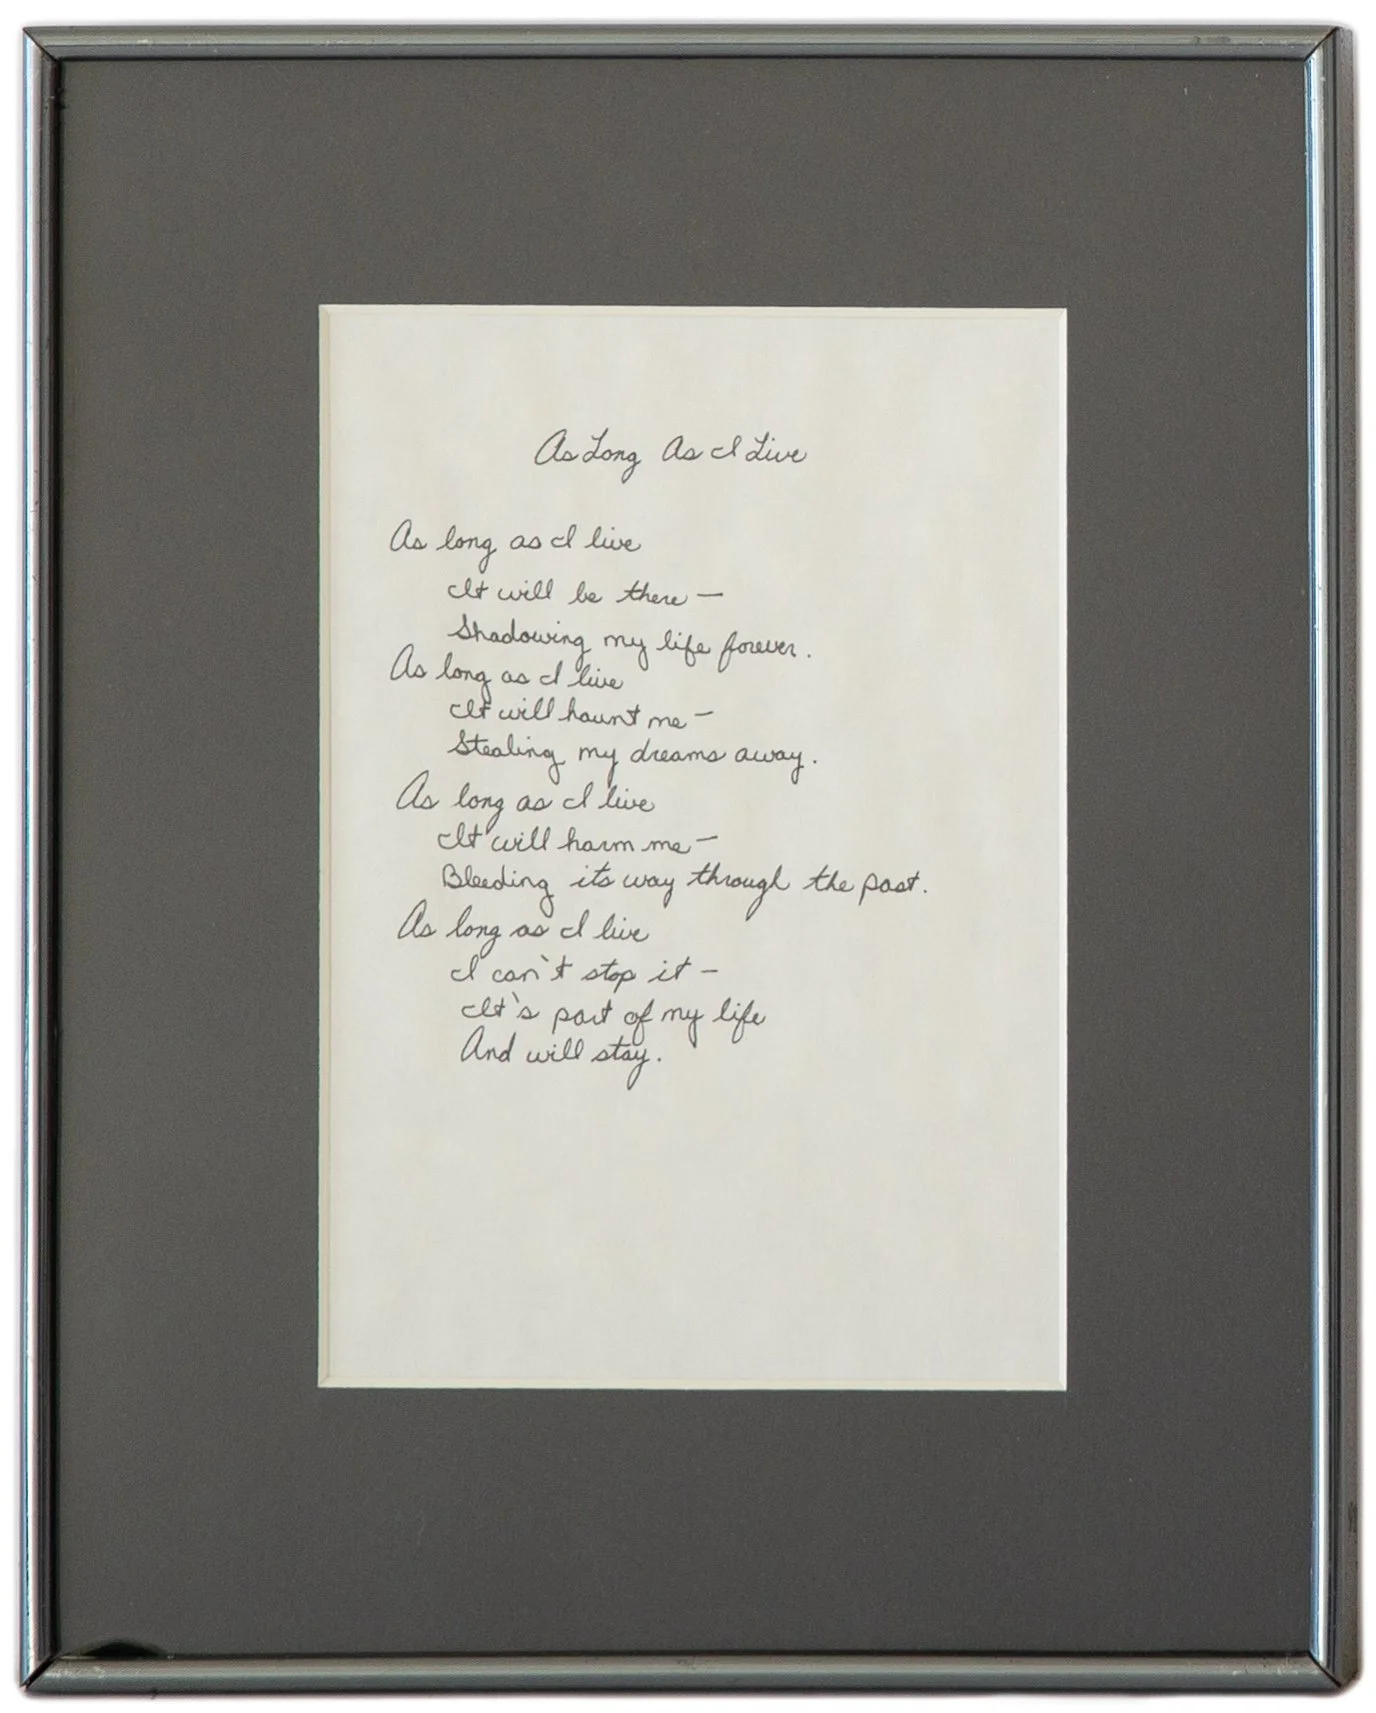 As Long As I Live
As long as I live
It will be there —
Shadowing my life forever.
As long as I live
It will haunt me —
Stealing my dreams away.
As long as I live
It will harm me —
Bleeding its way through the past.
As long as I live
I can't stop it —
It's part of my life
And will stay.